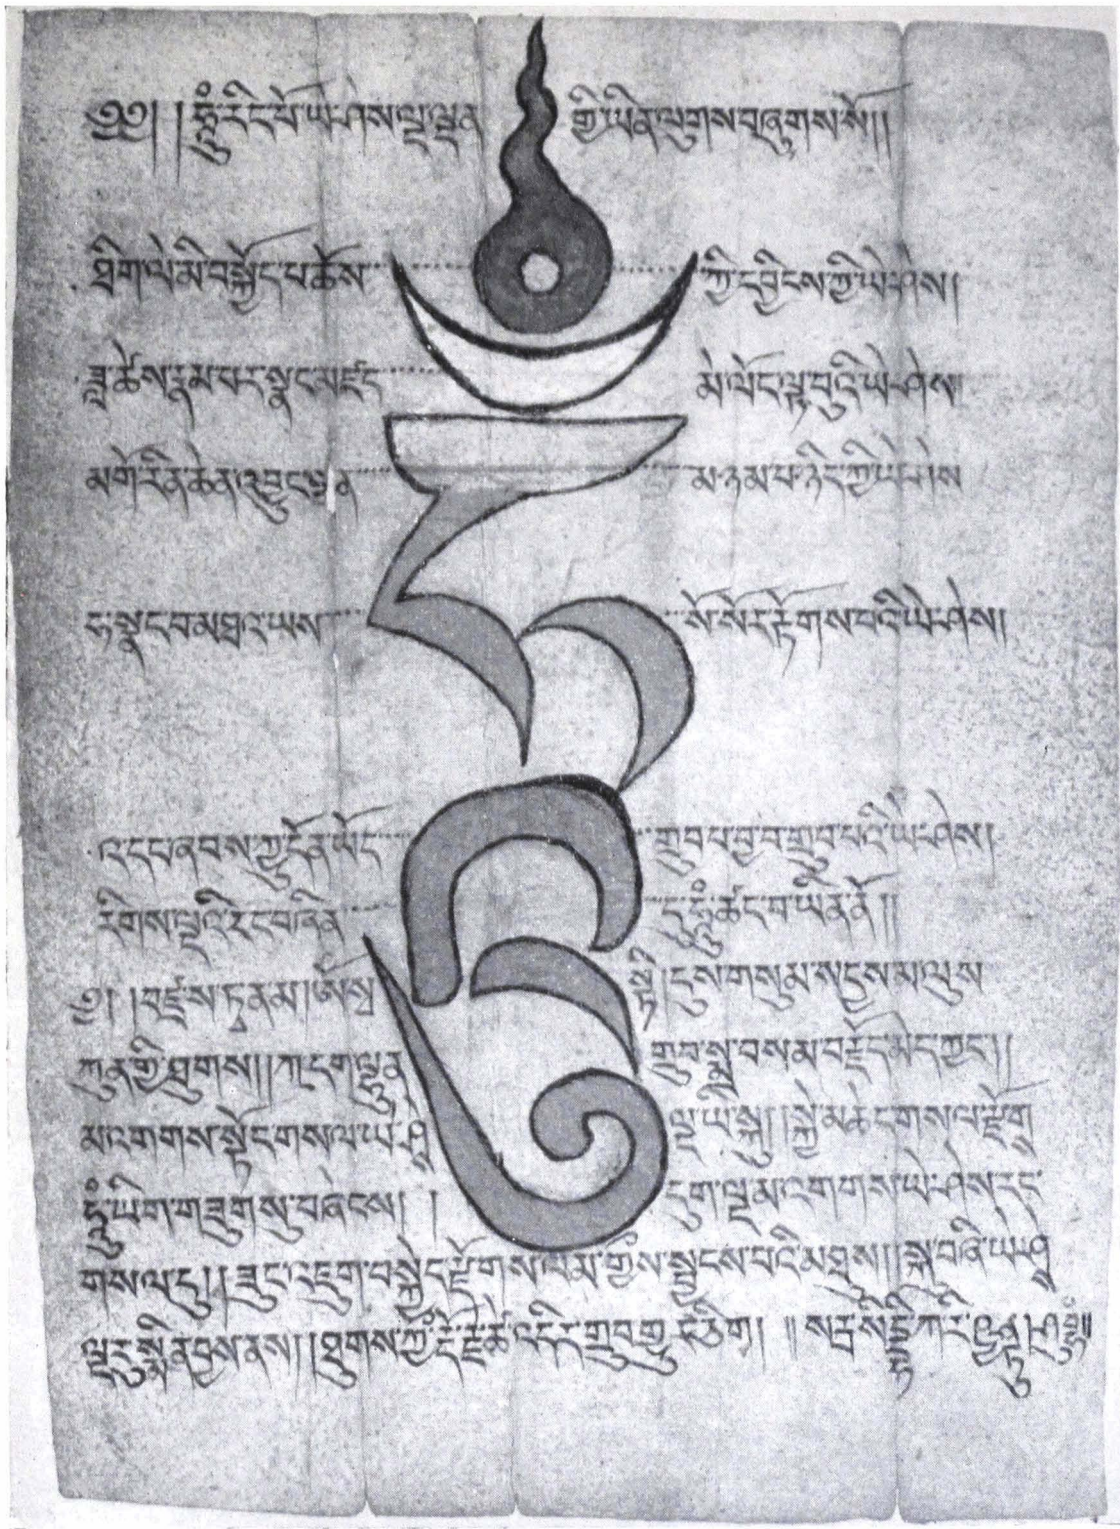 ༄༅། །ཧཱུྃ་རིང་པོ་ཡེ་ཤེས་ལྔ་ལྡན གྱི་ཡིན་ལུགས་བཞུགས་སོ།།
ཐིག་ལེ་མི་བསྐྱོད་པ་ཆོས ཀྱི་དབྱིངས་ཀྱི་ཡེ་ཤེས།
ཟླ་ཚེས་རྣམ་པར་སྣང་མཛད མེ་ལོང་ལྟ་བུའི་ཡེ་ཤེས།
མགོ་རིན་ཆེན་འབྱུང་ལྡན མ་ཉམ་པ་ཉིད་ཀྱི་ཡེ་ཤེས
ཧ་སྣང་བ་མཐའ་ཡས སོ་སོར་རྟོགས་པའི་ཡེ་ཤེས།
འ་དང་ཞབས་ཀྱུ་དོན་ཡོད གྲུབ་པ་བྱ་བ་གྲུབ་པའི་ཡེ་ཤེས།
རིགས་ལྔའི་རང་བཞིན ད་ཧཱུྃ་ཚང་བ་ཡིན་ནོ།།
༄། །བཛྲ་ས་ཏྭ་ནམ། །དུས་གསུམ་སངྱས་མ་ལུས
ཀུན་གྱི་ཐུགས།།ཀ་དག་ལྷུན གྲུབ་སྨྲ་བསམ་བརྗོད་མེད་ཀྱང་།།
མ་འགགས་སྟོང་གསལ་ཡེ་ཤེ ལྔ་ཡི་སྐུ།།སྐྱེ་མཆེད་གསལ་རྫོག
ཧཱུྃ་ཡིག་གཟུགས་སུ་བཞེངས། ། དུག་ལྔ་མ་འགགས་ཡེ་ཤེས་རང་
གསལ་དུ།།ཟུང་འཇུག་བསྐྱེད་རྫོགས་ལམ་གྱིས་སྦྱངས་པའི་མཐུས།།སྐུ་བཞི་ཡེ་ཤེ
ལྔར་སྨིན་བྱས་ནས།།ཐུགས་ཀྱི་རྡོ་རྗེ་ཆེ་འདིར་གྲུབ་གྱུར་ཅིག། །།